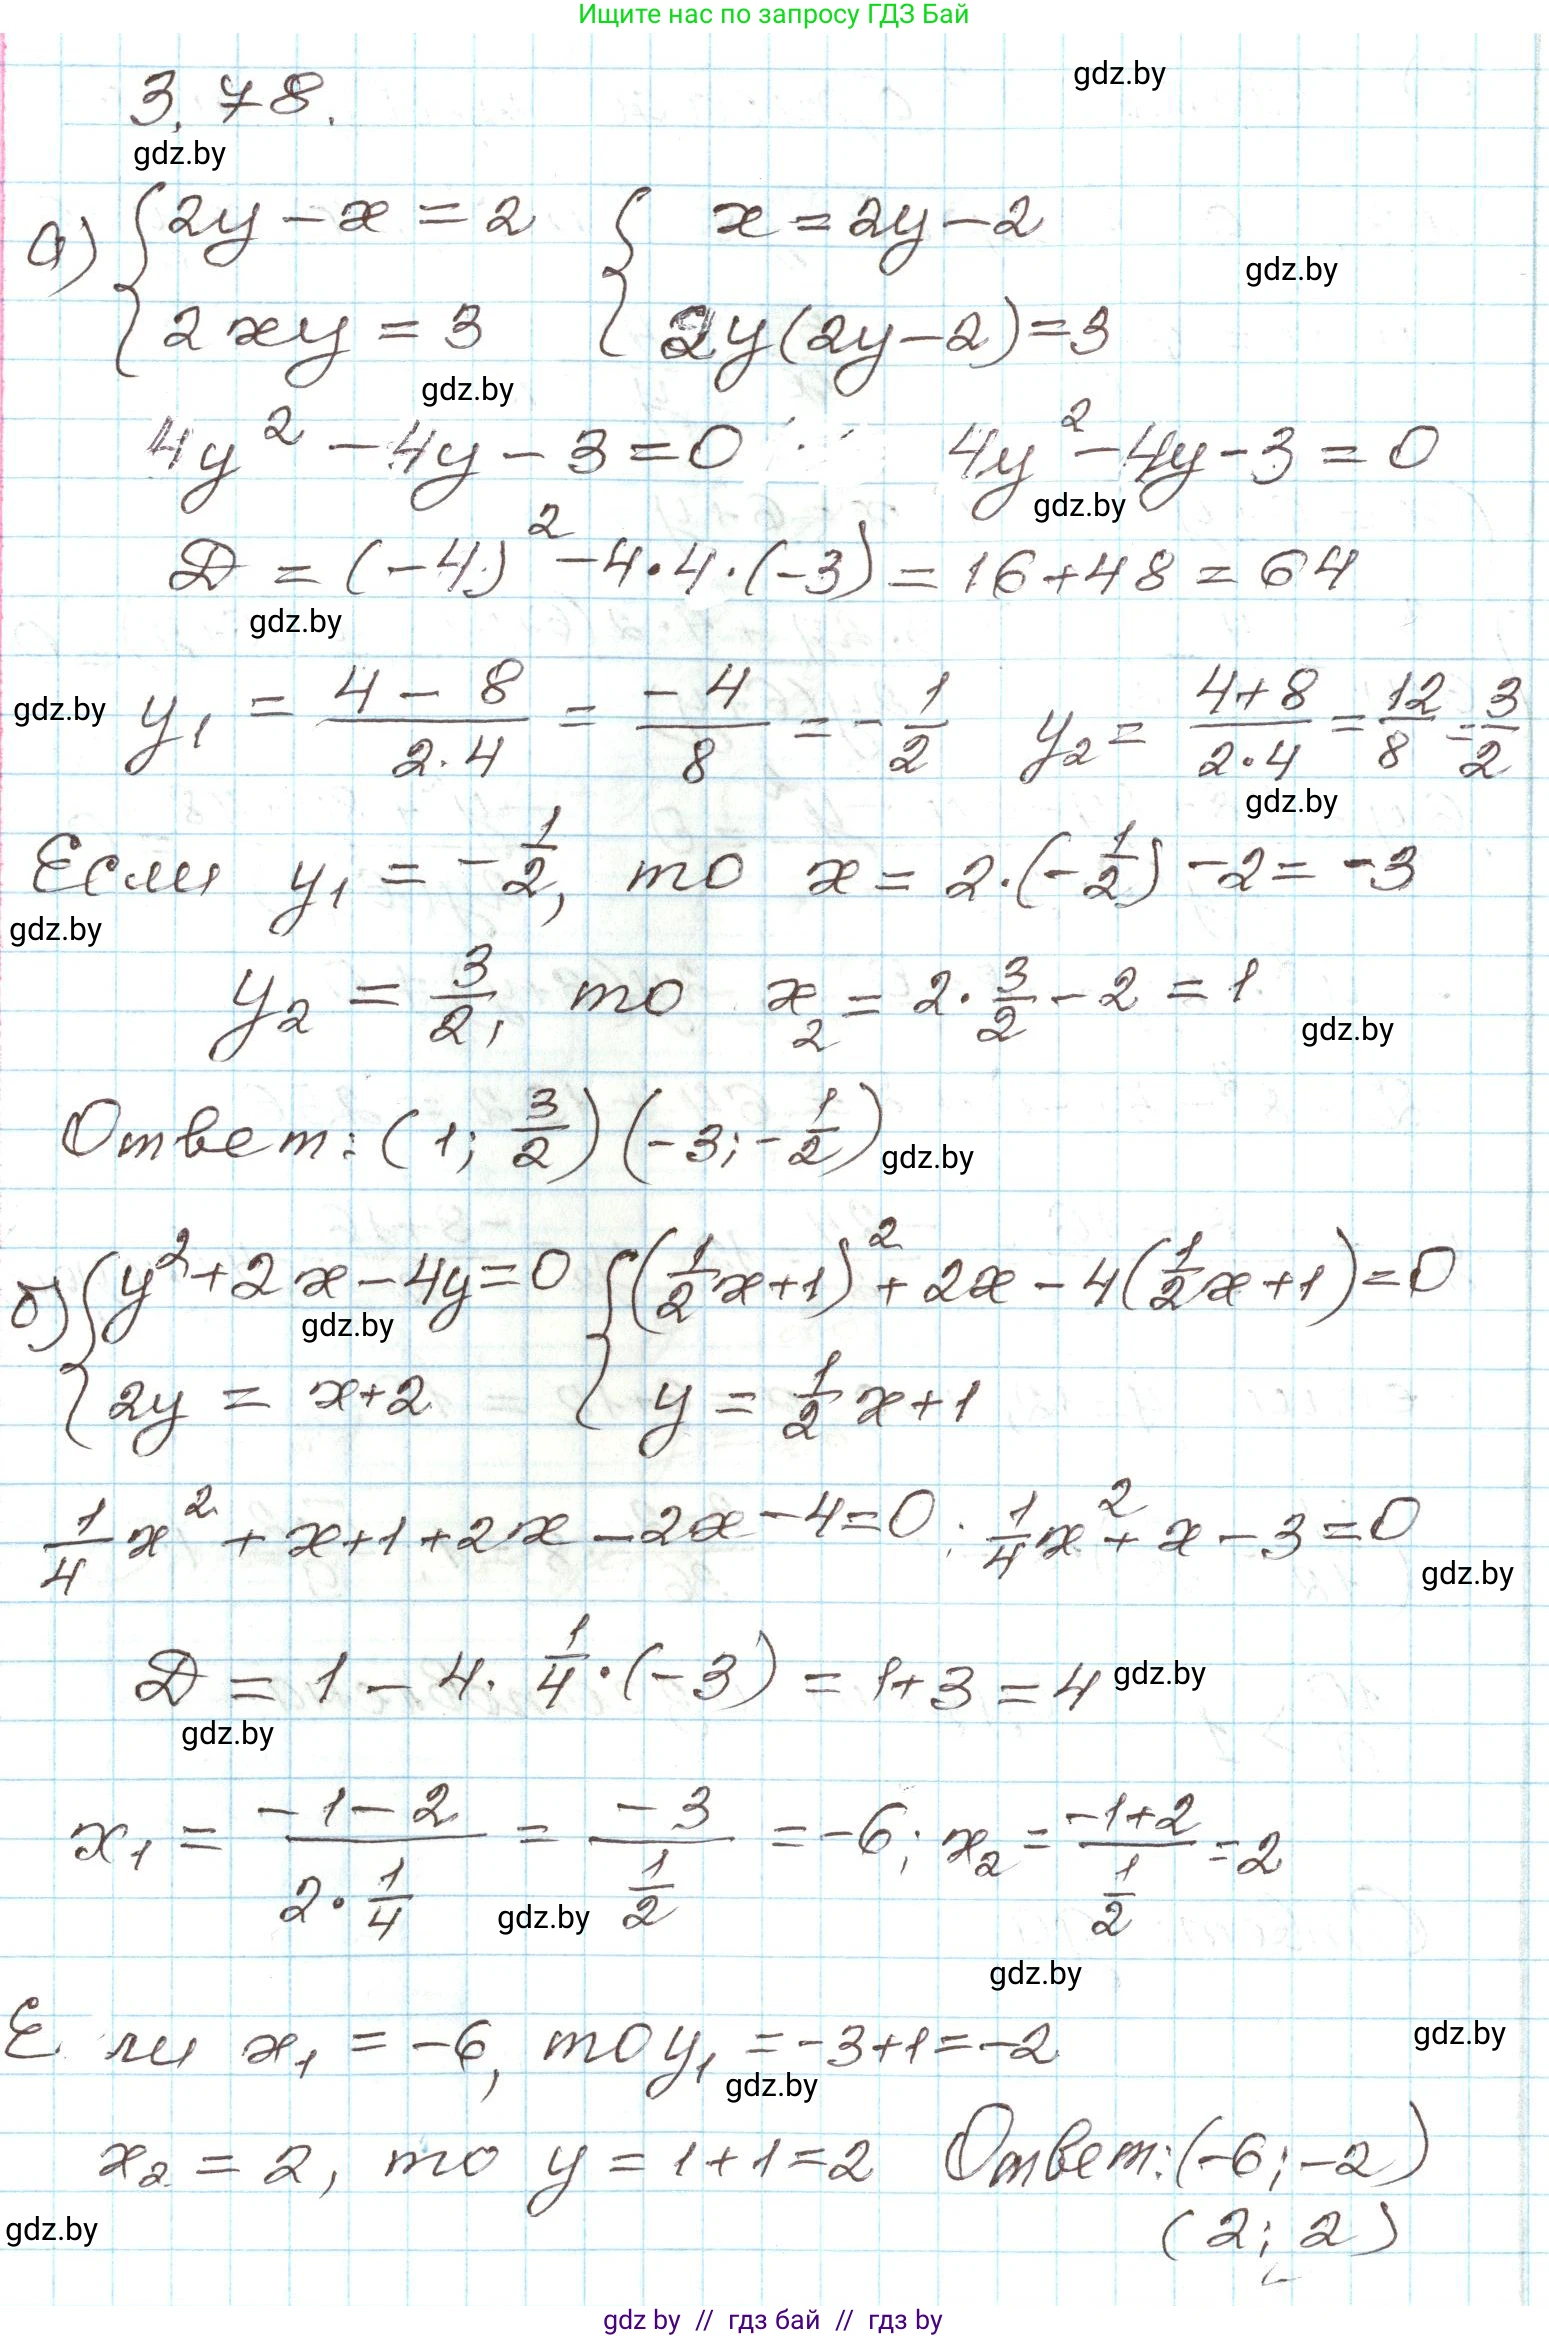 Ищите нас по запросу ГДЗ Бай
3.78.
gdz.by
gdz.by
а) { 2y - x = 2 { x = 2y - 2
gdz.by
{ 2xy = 3 { 2y(2y - 2) = 3
gdz.by
4y² - 4y - 3 = 0 4y² - 4y - 3 = 0
gdz.by
D = (-4)² - 4·4·(-3) = 16 + 48 = 64
gdz.by
gdz.by y₁ = (4 - 8)/(2·4) = -4/8 = -1/2 y₂ = (4+8)/(2·4) = 12/8 = 3/2
gdz.by
Если y₁ = -1/2, то x = 2·(-1/2) - 2 = -3
gdz.by
y₂ = 3/2, то x₂ = 2·3/2 - 2 = 1
gdz.by
Ответ: (1; 3/2) (-3; -1/2)
gdz.by
б) { y² + 2x - 4y = 0 { (1/2x+1)² + 2x - 4(1/2x+1) = 0
gdz.by
{ 2y = x+2 { y = 1/2x+1
1/4x² + x+1+2x - 2x - 4 = 0 ; 1/4x² + x - 3 = 0
gdz.by
D = 1 - 4·1/4·(-3) = 1+3 = 4
gdz.by
gdz.by
x₁ = (-1-2)/(2·1/4) = -3/(1/2) = -6; x₂ = (-1+2)/(1/2) = 2
gdz.by
gdz.by
Е ли x₁ = -6, то y₁ = -3+1 = -2
gdz.by
gdz.by
x₂ = 2, то y = 1+1 = 2 Ответ: (-6; -2)
gdz.by
(2; 2)
gdz by // гдз бай // гдз by